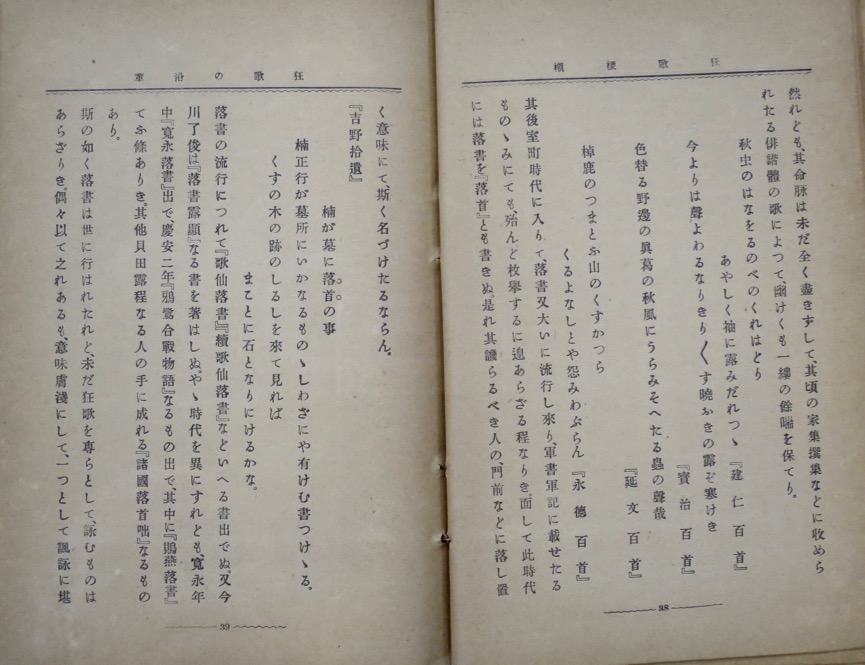 狂歌梗概
然れども、其命脉は未だ全く盡きずして、其頃の家集撰集などに收めら
れたる俳諧體の歌によつて、幽けくも一縷の餘喘を保てり。
秋虫のはなをるのべのくれはどり
あやしく袖に露みだれつゝ『建仁百首』
今よりは聲よわるなりきり〱す曉おきの露ぞ寒けき
『寳治百首』
色替る野邊の眞葛の秋風にうらみそへたる蟲の聲哉
『延文百首』
棹鹿のつまとふ山のくすかつら
くるよなしとや怨みわぶらん『永德百首』
其後室町時代に入りて、落書又大いに流行し來り、軍書軍記に載せたる
ものゝみにても、殆んど枚擧するに遑あらざる程なりき。而して此時代
には落書を『落首』とも書きぬ。是れ其譏らるべき人の、門前などに落し置
38
狂歌の沿革
く意味にて、斯く名づけたるならん。
『吉野拾遺』
楠が墓に落首の事
楠正行が墓所にいかなるものゝしわざにや有けむ書つけゝる。
くすの木の跡のしるしを來て見れば
まことに石となりにけるかな。
落書の流行につれて『歌仙落書』『續歌仙落書』などいへる書出でぬ。又今
川了俊は『落書露顯』なる書を著はしぬ。やゝ時代を異にすれども、寛永年
中『寛永落書』出で、慶安二年『鴉鷺合戰物語』なるもの出で、其中に『鵙燕落書』
てふ條ありき。其他貝田露程なる人の手に成れる『諸國落首咄』なるもの
あり。
斯の如く落書は世に行はれたれど、未だ狂歌を專らとして、詠むものは
あらざりき。偶々以て之れあるも、意味膚淺にして、一つとして諷詠に堪
39